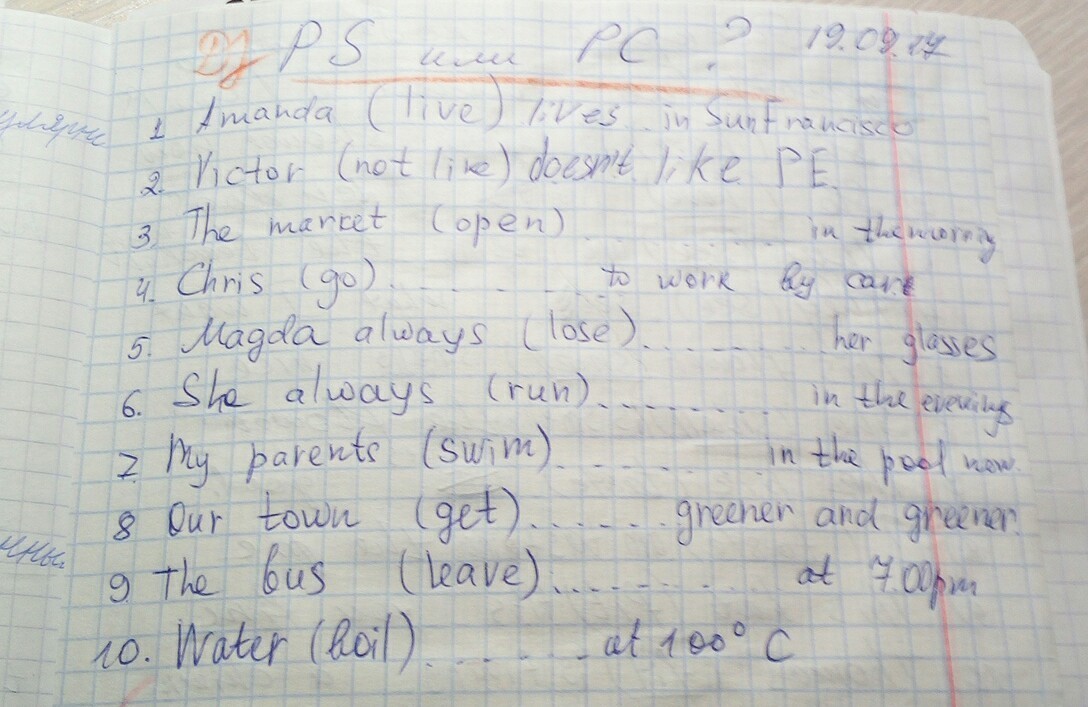 D) PS или PC ? 19.09.17
1. Amanda (live) lives in SunFrancisco
2. Victor (not like) doesn't like PE.
3. The market (open) ........ in the morning
4. Chris (go) ........ to work by care
5. Magda always (lose) ........ her glasses
6. She always (run) ........ in the evenings
7. My parents (swim) ........ in the pool now.
8 Our town (get) ...... greener and greener.
9. The bus (leave) ........ at 7.00pm
10. Water (boil) ....... at 100° C